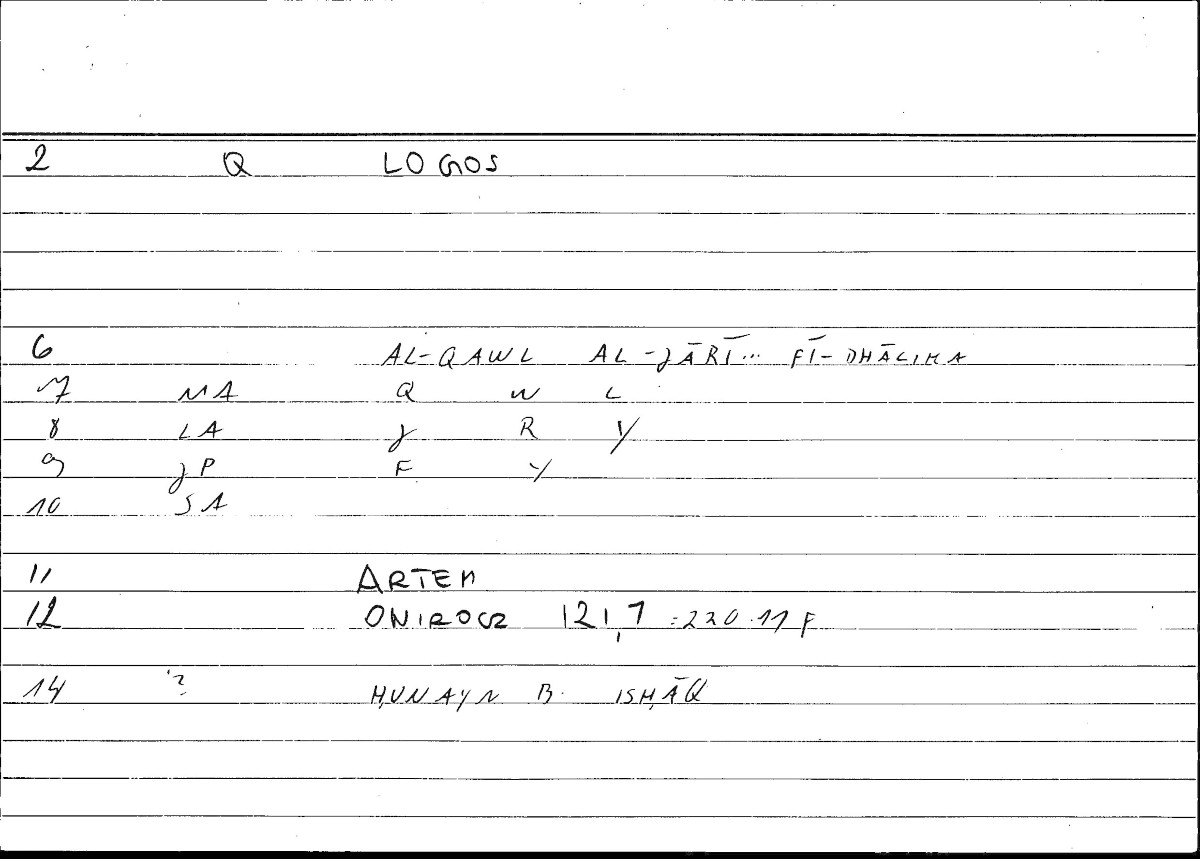 2 Q LOGOS
6 AL-QAWL AL-JĀRĪ... FĪ-DHĀLIKA
7 MA Q W L
8 LA J R Y
9 JP F Y
10 SA
11 ARTEM
12 ONIROCR 121,7 =220.11 F
14 ? ḤUNAYN B. ISḤĀQ